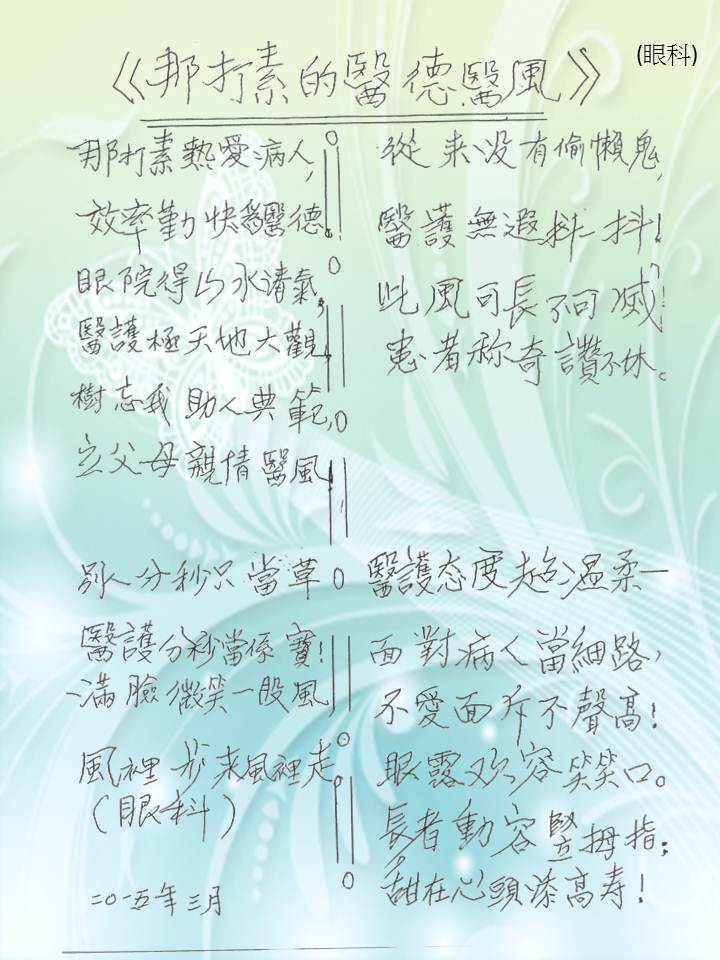 (眼科)
《那打素的醫德醫風》
那打素熱愛病人,
效率勤快為醫德!
眼院得山水清氣,
醫護極天地大觀,
樹忘我助人典範,
立父母親情醫風,
別人分秒只當草
醫護分秒當係寶!
滿臉微笑一股風,
風裡步來風裡走。
(眼科)
二〇一五年三月
從来没有偷懶鬼,
醫護無遐抖一抖!
此風可長不可滅!
患者称奇讚不休。
醫護态度超温柔—
面對病人當細路,
不愛面斥不聲高!
眼露欢容笑笑口。
長者動容豎拇指;
甜在心頭添高寿!